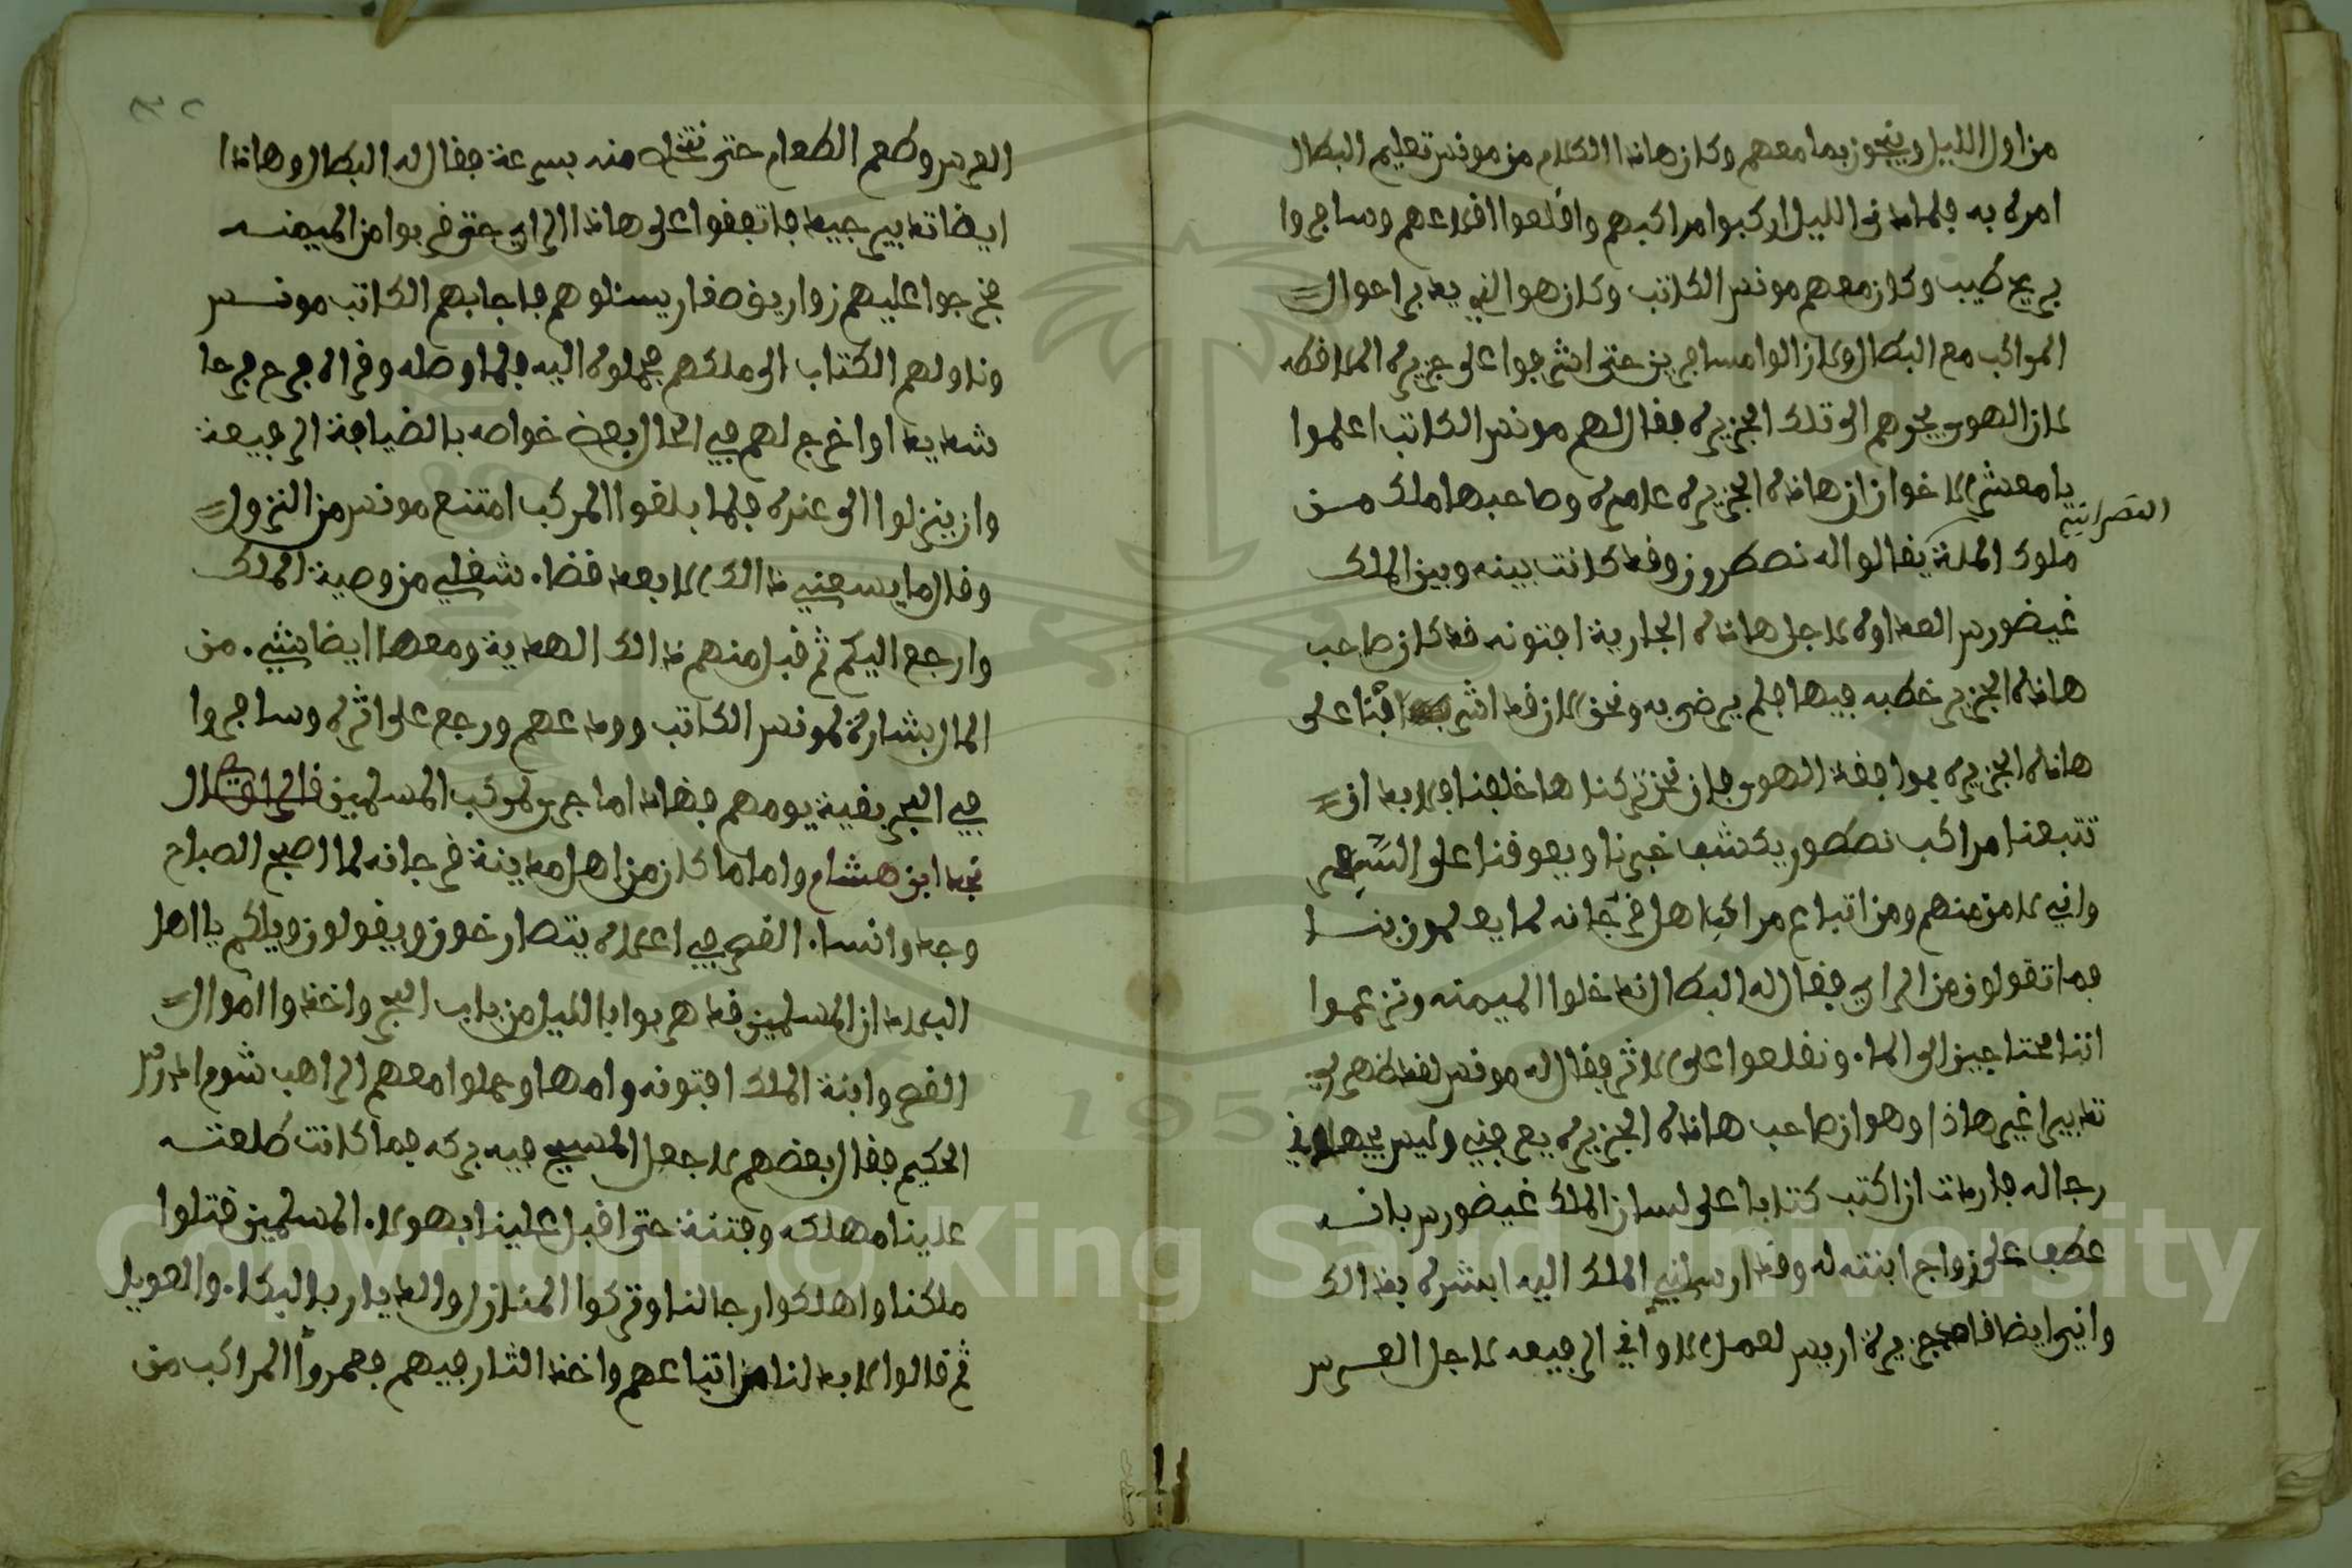 من اول الليل وينجوز بما معهم وكان هاذا الكلام من مونس تعليم البطال
امره به فلما دنى الليل اركبوا مراكبهم واقلعوا اقلاعهم وسافروا
بريح طيب وكان معهم مونس الكاتب وكان هو الذي يدبر احوال
المواكب مع البطال ولازالوا مسافرين حتى اشرفوا على جزيرة
لان الهوى يجرهم الى تلك الجزيرة فقال لهم مونس الكاتب اعلموا
يا معشر الاخوان ان هاذه الجزيرة عامرة وصاحبها ملك من
النصرانية
ملوك الملة يقالو اله نصطرون وقد كانت بينه وبين الملك
غيضورس العداوة لاجل هاذه الجارية افتونه قد كان صاحب
هاذه الجزيرة خطبه فيها فلم يرضى به ونحن الان قد اشرفنا على
هاذه الجزيرة بموافقة الهوى فان نحن تركناها خلفنا فلابد ان
تتبعنا مراكب نصطور يكشف خبرنا ويعوقنا على السير
واني لا من منهم ومن اتباع مراكب اهل فرجانه لما يعلمون بنا
فما تقولون من الراي فقال له البطال ندخلوا الميمنه ونزعموا
اننا محتاجين الى الما. ونقلعوا على الاثر فقال له مونس لقد ظهر لي
تدبيرا غير هاذا وهو ان صاحب هاذه الجزيرة يعرفني وليس يجهلاني
رجاله فاردت ان اكتب كتابا على لسان الملك غيضورس بانه
عطف على زواج ابنته له وقد ارسلني الملك اليه ابشره بذالك
واني ايضا قاصد جزيرة اريس لعمل الاواني الرفيعه لاجل العرس
العرس وطعم الطعام حتى نتخلص منه بسرعة فقال له البطال وهاذا
ايضا تدبير جيد فاتفقوا على هاذا الراي حتى قربوا من الميمنه
فخرجوا عليهم زواريق صغار يسئلوهم فاجابهم الكاتب مونس
وناولهم الكتاب الى ملكهم فحملوه اليه فلما وصله وقراه فرح فرحا
شديدا واخرج لهم في الحال بعض خواصه بالضيافة الرفيعة
وان ينزلوا الى عنده فلما بلغوا المركب امتنع مونس من النزول
وقال ما يسعني ذالك الا بعد قضا. شغلي من وصية الملك
وارجع اليكم ثم قبل منهم ذالك الهدية ومعها ايضا شي. من
المال بشارة لمونس الكاتب وودعهم ورجع على اثره وسافروا
في البحر بقية يومهم فهاذا ما جرى لمركب المسلمين قال
نجد ابن هشام واما ما كان من اهل مدينة فرجانه لما اصبح الصباح
وجدوا نسا. القصر في اعلاه يتصارخون ويقولون ويلكم يا اهل
البلاد ان المسلمين قد هربوا بالليل من باب البحر واخذوا اموال
القصر وابنة الملك افتونه وامها وحملوا معهم الراهب شوم
الحكيم فقال بعضهم لا جعل المسيح فيه بركه فما كانت طلعته
علينا مهلكه وفتنة حتى اقبل علينا بهولا. المسلمين قتلوا
ملكنا واهلكوا رجالنا وتركوا المنازل والديار بالبكا. والعويل
ثم قالوا لابد لنا من اتباعهم واخذ الثار فيهم فعمروا المراكب من